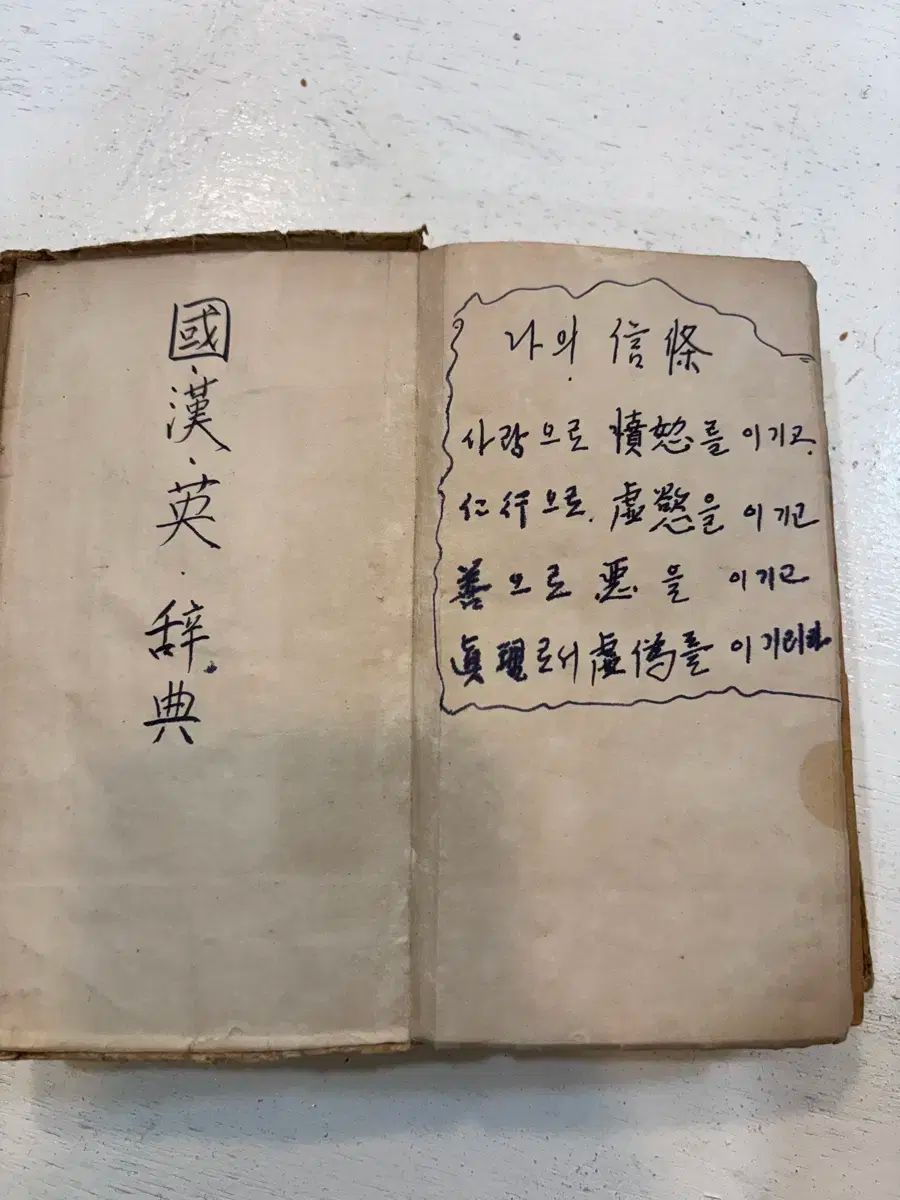 國·漢·英·辞典
나의 信條
사랑으로 憤怒를 이기고,
仁行으로 虛慾을 이기고
善으로 悪을 이기고
眞理로서 虛僞를 이기리라